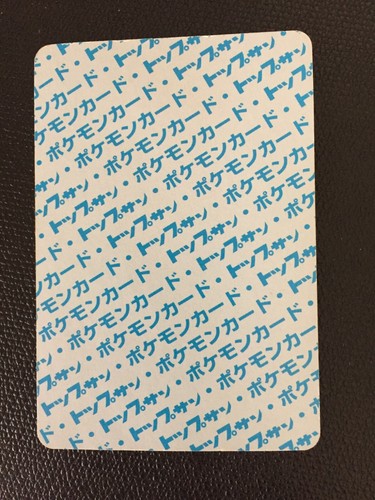 トップサン・
ポケモンカード・トップサン
・ポケモンカード・トップサン・
・ポケモンカード・トップサン・
トップサン・ポケモンカード・トップサン
トップサン・ポケモンカード・
・トップサン・ポケモンカード
カード・トップサン・ポケモンカード
ポケモンカード・トップサン・ポケ
ポケモンカード・トップサン・
・ポケモンカード・トップサン
・ポケモンカード・
トップサン・ポケモンカード
トップサン・ポケモンカード
・トップサン・ポケモン
トップサン